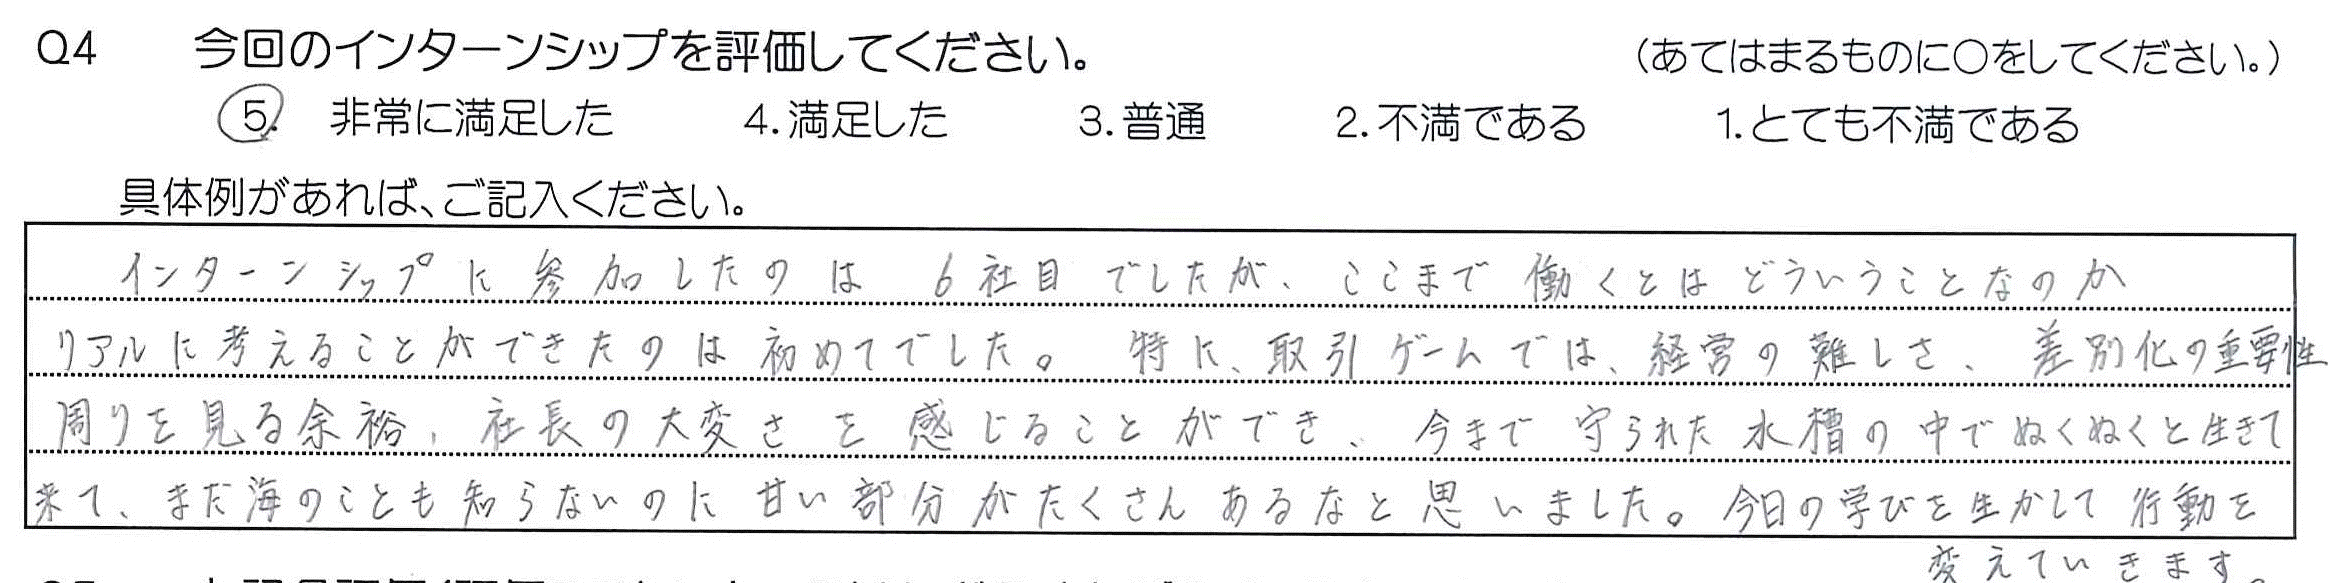 Q4 今回のインターンシップを評価してください。 (あてはまるものに○をしてください。)
5. 非常に満足した 4.満足した 3.普通 2.不満である 1.とても不満である
具体例があれば、ご記入ください。
インターンシップに参加したのは 6社目でしたが、ここまで働くとはどういうことなのか
リアルに考えることができたのは初めてでした。特に、取引ゲームでは、経営の難しさ、差別化の重要性
周りを見る余裕、社長の大変さを感じることができ、今まで守られた水槽の中でぬくぬくと生きて
来て、まだ海のことも知らないのに甘い部分がたくさんあるなと思いました。今日の学びを生かして行動を
変えていきます。